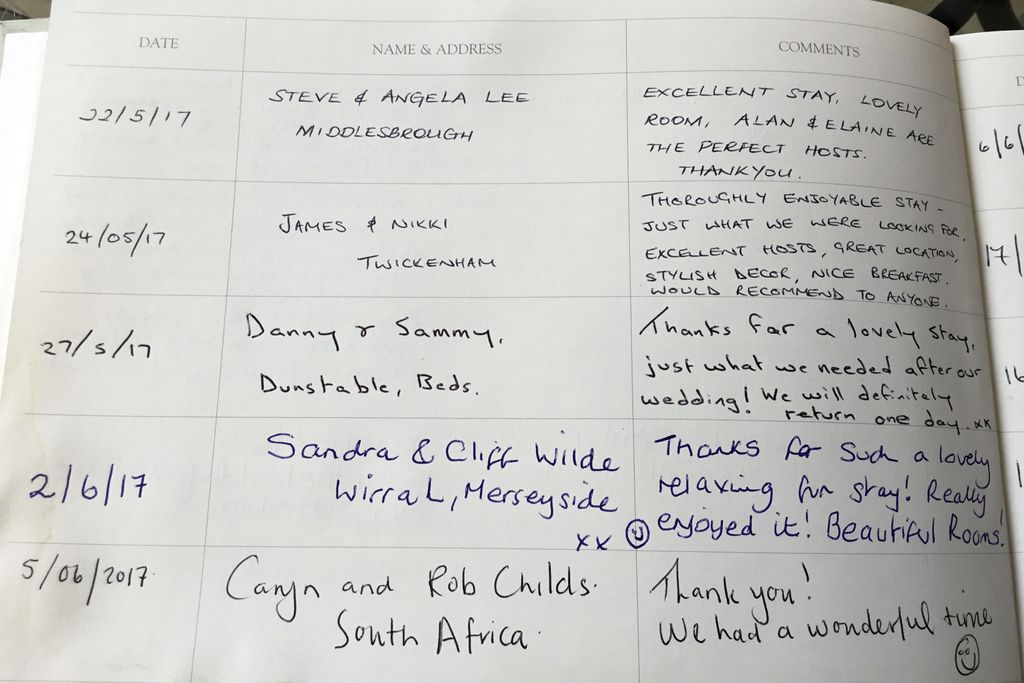 DATE NAME & ADDRESS COMMENTS
22/5/17
STEVE & ANGELA LEE
MIDDLESBROUGH
EXCELLENT STAY, LOVELY
ROOM, ALAN & ELAINE ARE
THE PERFECT HOSTS.
THANKYOU.
24/05/17
JAMES & NIKKI
TWICKENHAM
THOROUGHLY ENJOYABLE STAY -
JUST WHAT WE WERE LOOKING FOR.
EXCELLENT HOSTS, GREAT LOCATION,
STYLISH DECOR, NICE BREAKFAST.
WOULD RECOMMEND TO ANYONE.
27/5/17
Danny & Sammy,
Dunstable, Beds.
Thanks for a lovely stay,
just what we needed after our
wedding! We will definitely
return one day. xx
2/6/17
Sandra & Cliff Wilde
Wirral, Merseyside
xx
Thanks for such a lovely
relaxing fun stay! Really
enjoyed it! Beautiful Rooms!
5/06/2017.
Caryn and Rob Childs.
South Africa.
Thank you!
We had a wonderful time
D
6/6/
17/
16